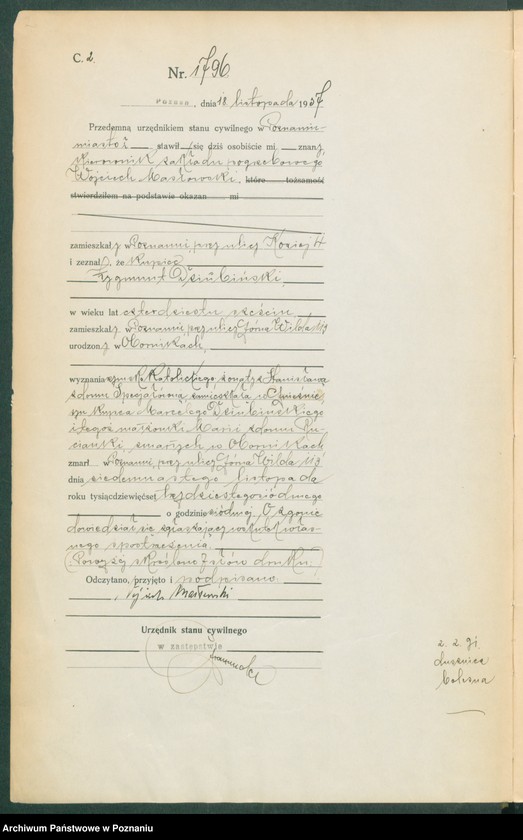 C. 2.
Nr. 1796.
Poznań, dnia 18 listopada 1937
Przedemną urzędnikiem stanu cywilnego w Poznaniu-
mieście stawił się dziś osobiście mi znany,
kierownik zakładu pogrzebowego
Wojciech Masłowski, którego tożsamość
stwierdziłem na podstawie okazan mi
zamieszkały w Poznaniu, przy ulicy Koziej 4
i zeznał, że kupiec
Zygmunt Dziubiński,
w wieku lat czterdziestu sześciu
zamieszkały w Poznaniu, przy ulicy Górna Wilda 119
urodzony w Obornikach,
wyznania rzymsk. katolickiego, żonaty z Stanisławą
z domu zamieszkałą w Gnieźnie
syn kupca Marcelego Dziubińskiego
i tegoż małżonki Marii z domu
zmarłych w Obornikach
zmarł w Poznaniu, przy ulicy Górna Wilda 119
dnia siedemnastego listopada
roku tysiącdziewięćset trzydziestego siódmego
o godzinie siódmej. O zgonie
dowiedział się zgłaszający wskutek włas-
nego spostrzeżenia.
Powyżej skreślono 7 słów druku.
Odczytano, przyjęto i podpisano
Wojciech Masłowski
Urzędnik stanu cywilnego
w zastępstwie
Archiwum Państwowe w Poznaniu